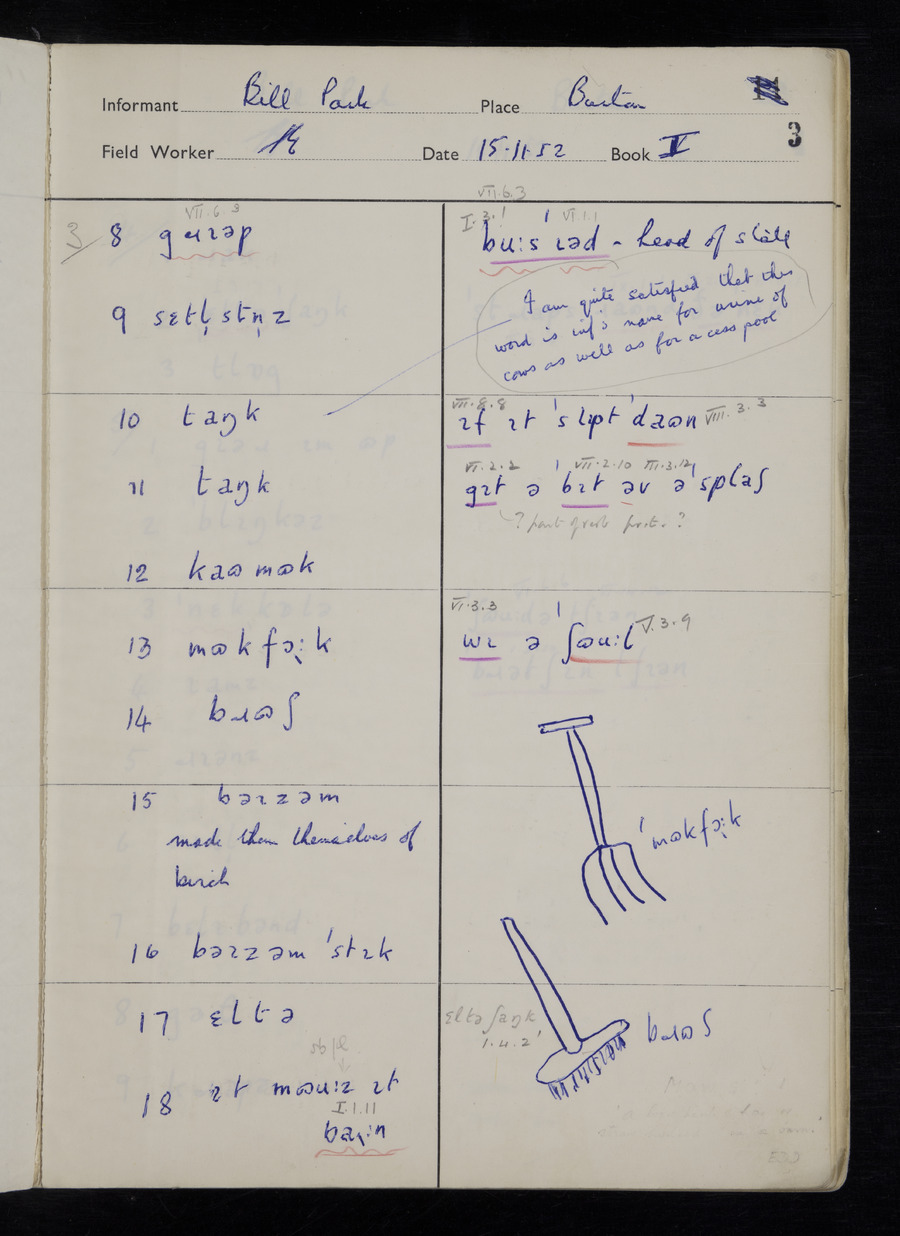 Informant Bill Park Place Burton
Field Worker Date 15·11·52 Book V
3
VII.6.3
3/ 8 VII.6.3
I.3.1 VI.1.1
buːs ɪəd - head of stall
9 sɛtl̩stn̩z
I am quite satisfied that this
word is inf's name for urine of
cows as well as for a cess pool
10 taŋk
VII.8.8 VIII.3.3
ɪf ɪt ˈslɪpt ˈdaʊn
11 taŋk
VI.2.2 VII.2.10 III.3.12
gɪt ə ˈbɪt əv ə ˈsplaʃ
12 kaʊmʊk
13 mʊkfɔ̜ːk
VI.3.3
wɪ ə ˈʃəuːl V.3.9
14 bɹʊʃ
15 bəɪzəm
made them themselves of
birch
ˈmʊkfɔ̜ːk
16 bəɪzəm ˈstɪk
17 ɛltə
ɛltə ʃaŋk
1.4.2
bɹʊʃ
18 ɪt məuːz ɪt
I.1.11